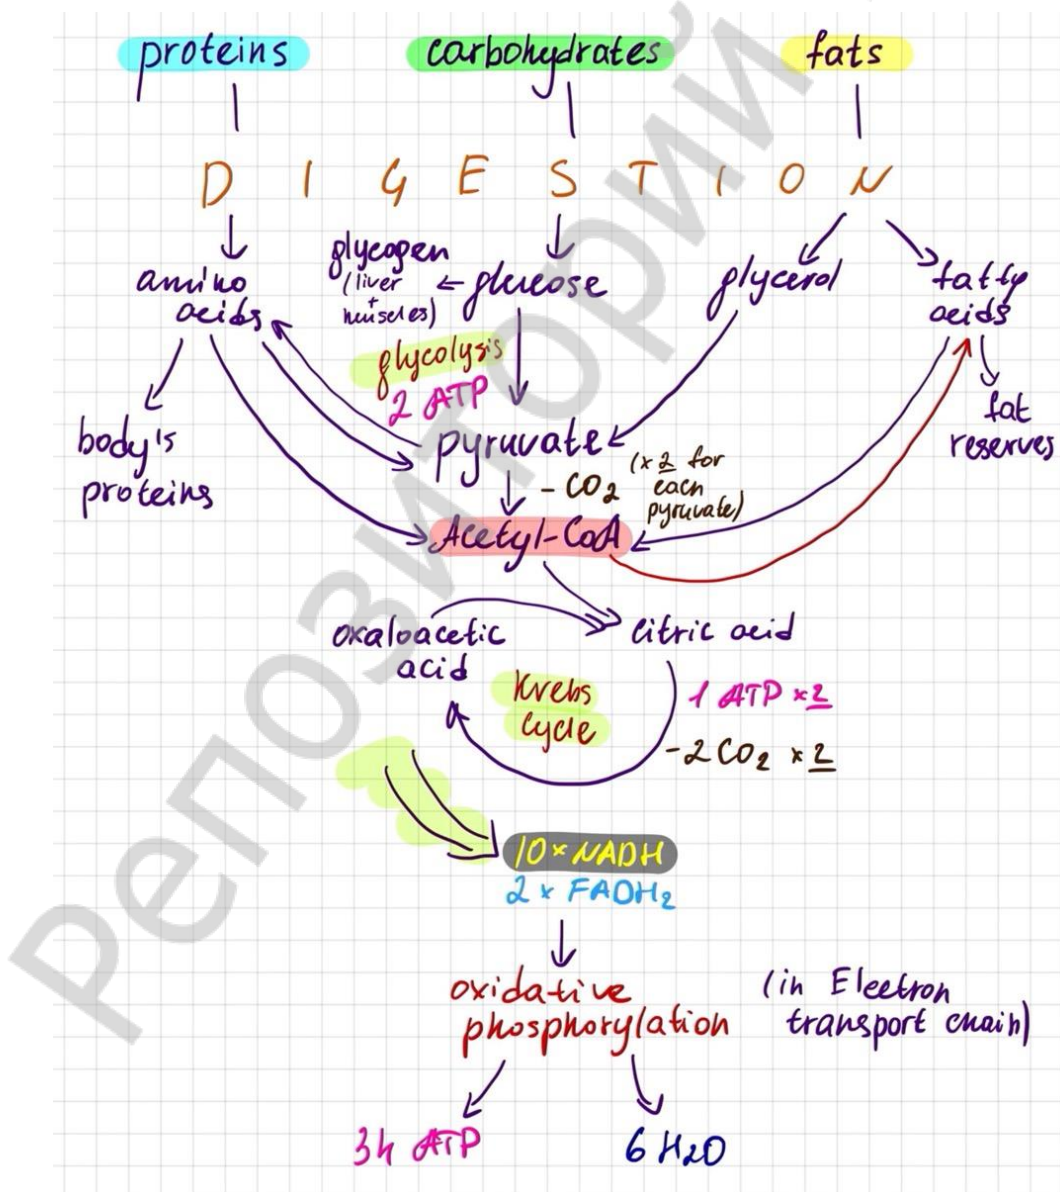 proteins carbohydrates fats
DIGESTION
amino
acids
glycogen
(liver
+
muscles)
glucose
glycerol
fatty
acids
glycolysis
2 ATP
body's
proteins
pyruvate
fat
reserves
- CO2
(x 2 for
each
pyruvate)
Acetyl-CoA
oxaloacetic
acid
citric acid
Krebs
Cycle
1 ATP x 2
-2 CO2 x 2
10 x NADH
2 x FADH2
oxidative
phosphorylation
(in Electron
transport chain)
34 ATP
6 H2O
Репозиторий